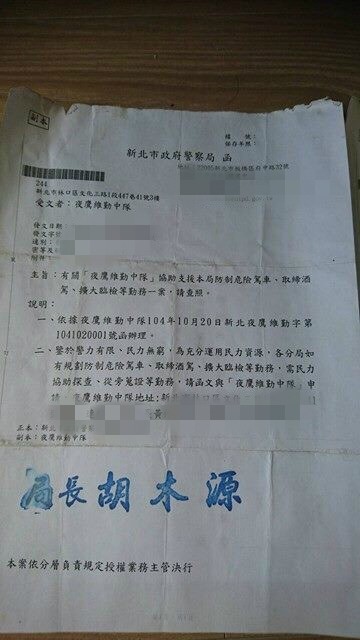 副本
檔　號：
保存年限：
新北市政府警察局　函
244
新北市林口區文化三路1段447巷41號3樓
受文者：夜鷹維勤中隊
發文日期
發文字
速別：
密等及
附件
主旨：有關「夜鷹維勤中隊」協助支援本局防制危險駕車、取締酒
駕、擴大臨檢等勤務一案，請查照。
說明：
一、依據夜鷹維勤中隊104年10月20日新北夜鷹維勤字第
1041020001號函辦理。
二、鑒於警力有限、民力無窮，為充分運用民力資源，各分局如
有規劃防制危險駕車、取締酒駕、擴大臨檢等勤務，需民力
協助探查、從旁蒐證等勤務，請函文與「夜鷹維勤中隊」申
夜鷹維勤中隊地址:新
黃
正本：新北
副本：夜鷹維勤中隊
局長胡木源
本案依分層負責規定授權業務主管決行